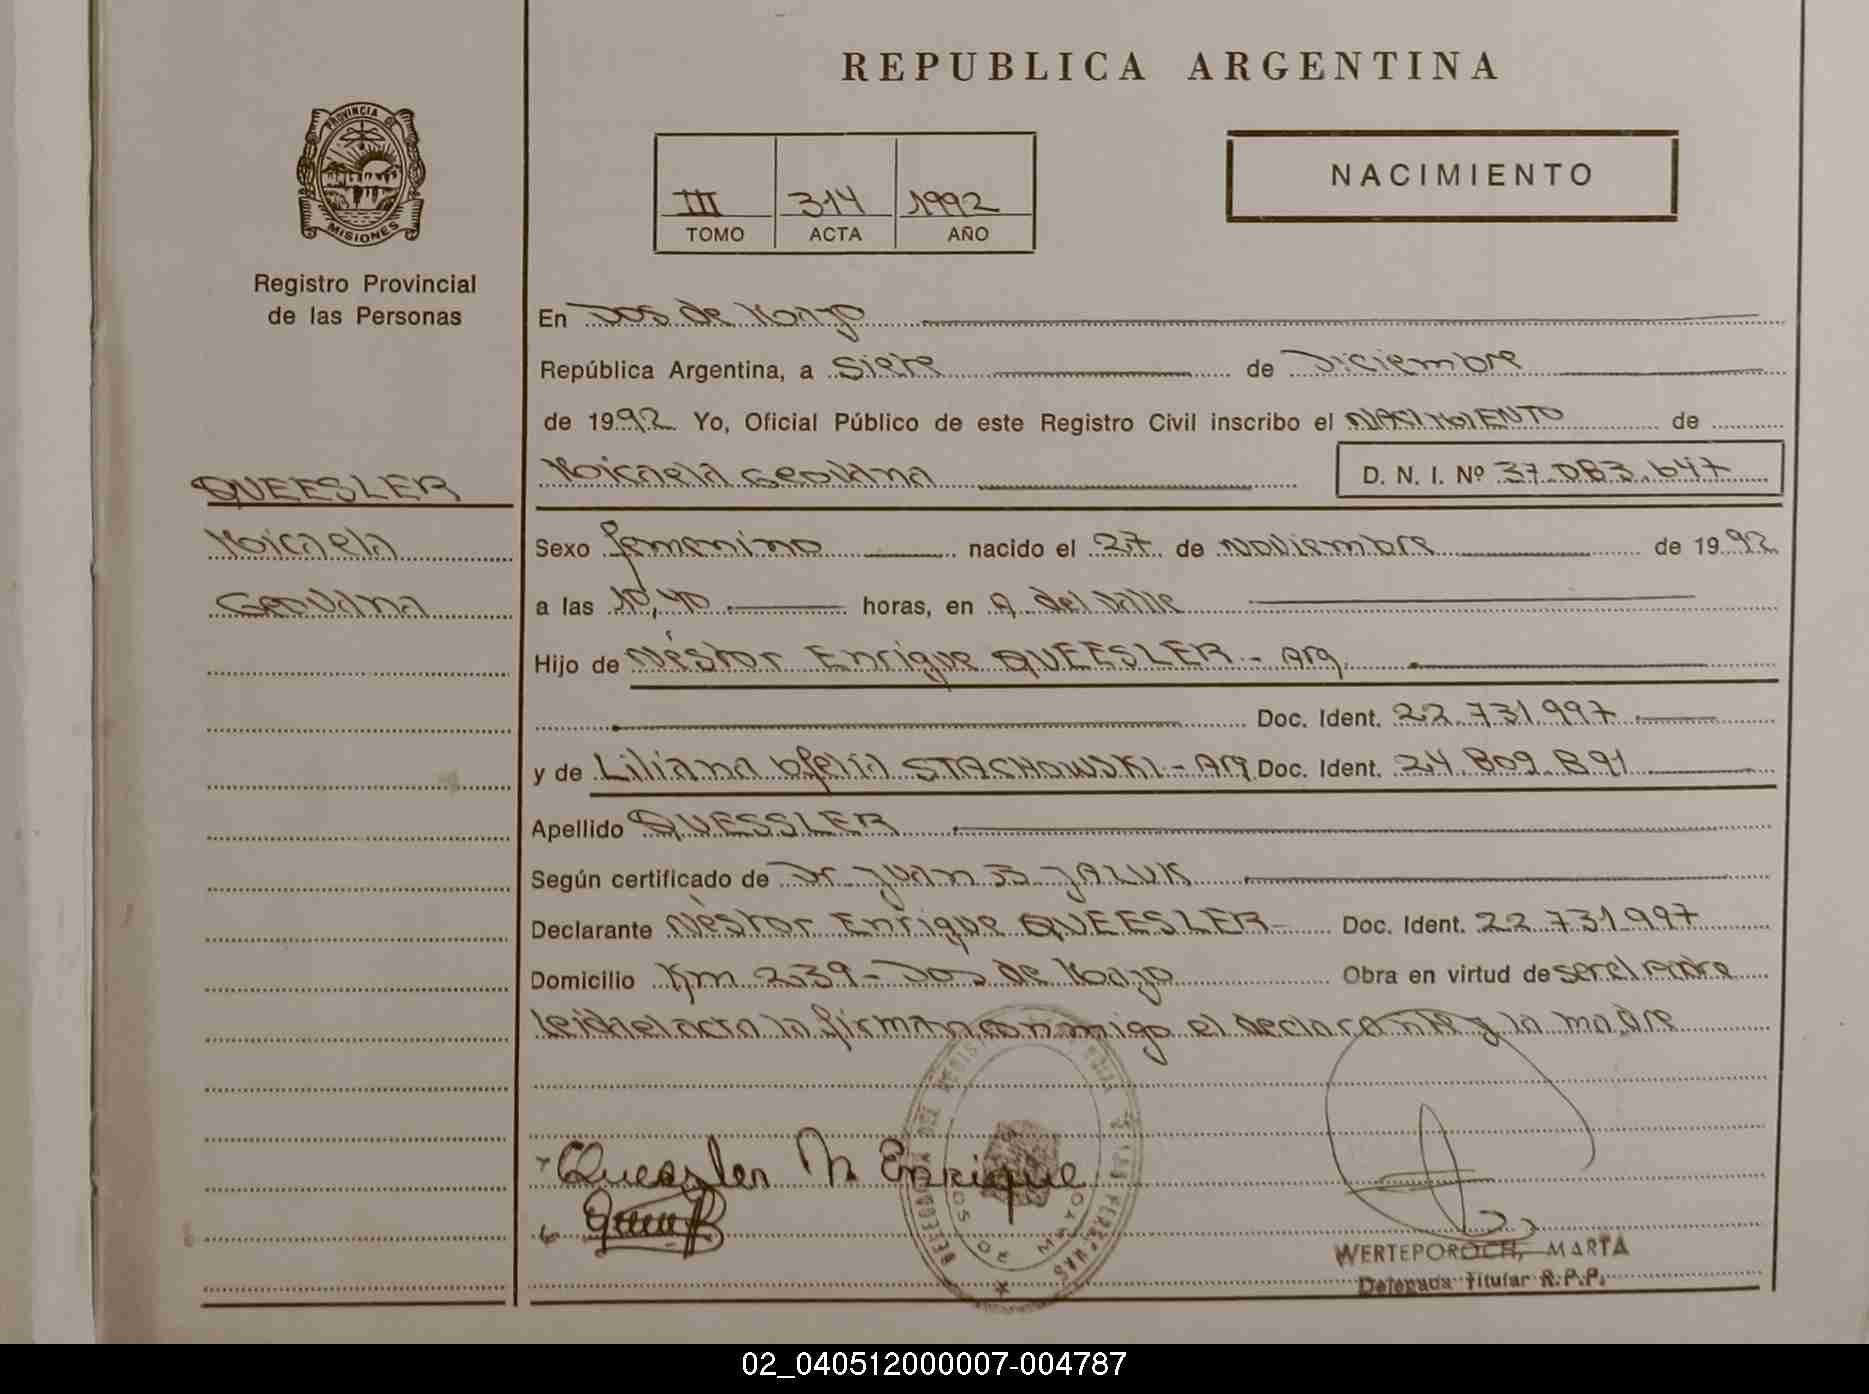 REPUBLICA ARGENTINA
PROVINCIA DE
MISIONES
Registro Provincial
de las Personas
NACIMIENTO
III 314 1992
TOMO ACTA AÑO
En Dos de Mayo
República Argentina, a Siete de Diciembre
de 1992 Yo, Oficial Público de este Registro Civil inscribo el NACIMIENTO de
Micaela Geovana D. N. I. Nº 37.083.647
QUEESLER
Micaela
Geovana
Sexo femenino nacido el 27 de Noviembre de 1992
a las 10,40 horas, en A. del Valle
Hijo de Néstor Enrique QUEESLER - Arg.
Doc. Ident. 22.731.997
y de Liliana Ofelia STACHOWSKI - Arg Doc. Ident. 24.809.891
Apellido QUESSLER
Según certificado de Dr. Juan B JAZUK
Declarante Néstor Enrique QUEESLER - Doc. Ident. 22.731.997
Domicilio Km 239 - Dos de Mayo Obra en virtud de ser el padre
Leida el acta la firman conmigo el declarante y la madre
Quessler N Enrique
DOS DE MAYO
WERTEPOROCH, MARTA
Delegada Titular R.P.P.
02_040512000007-004787